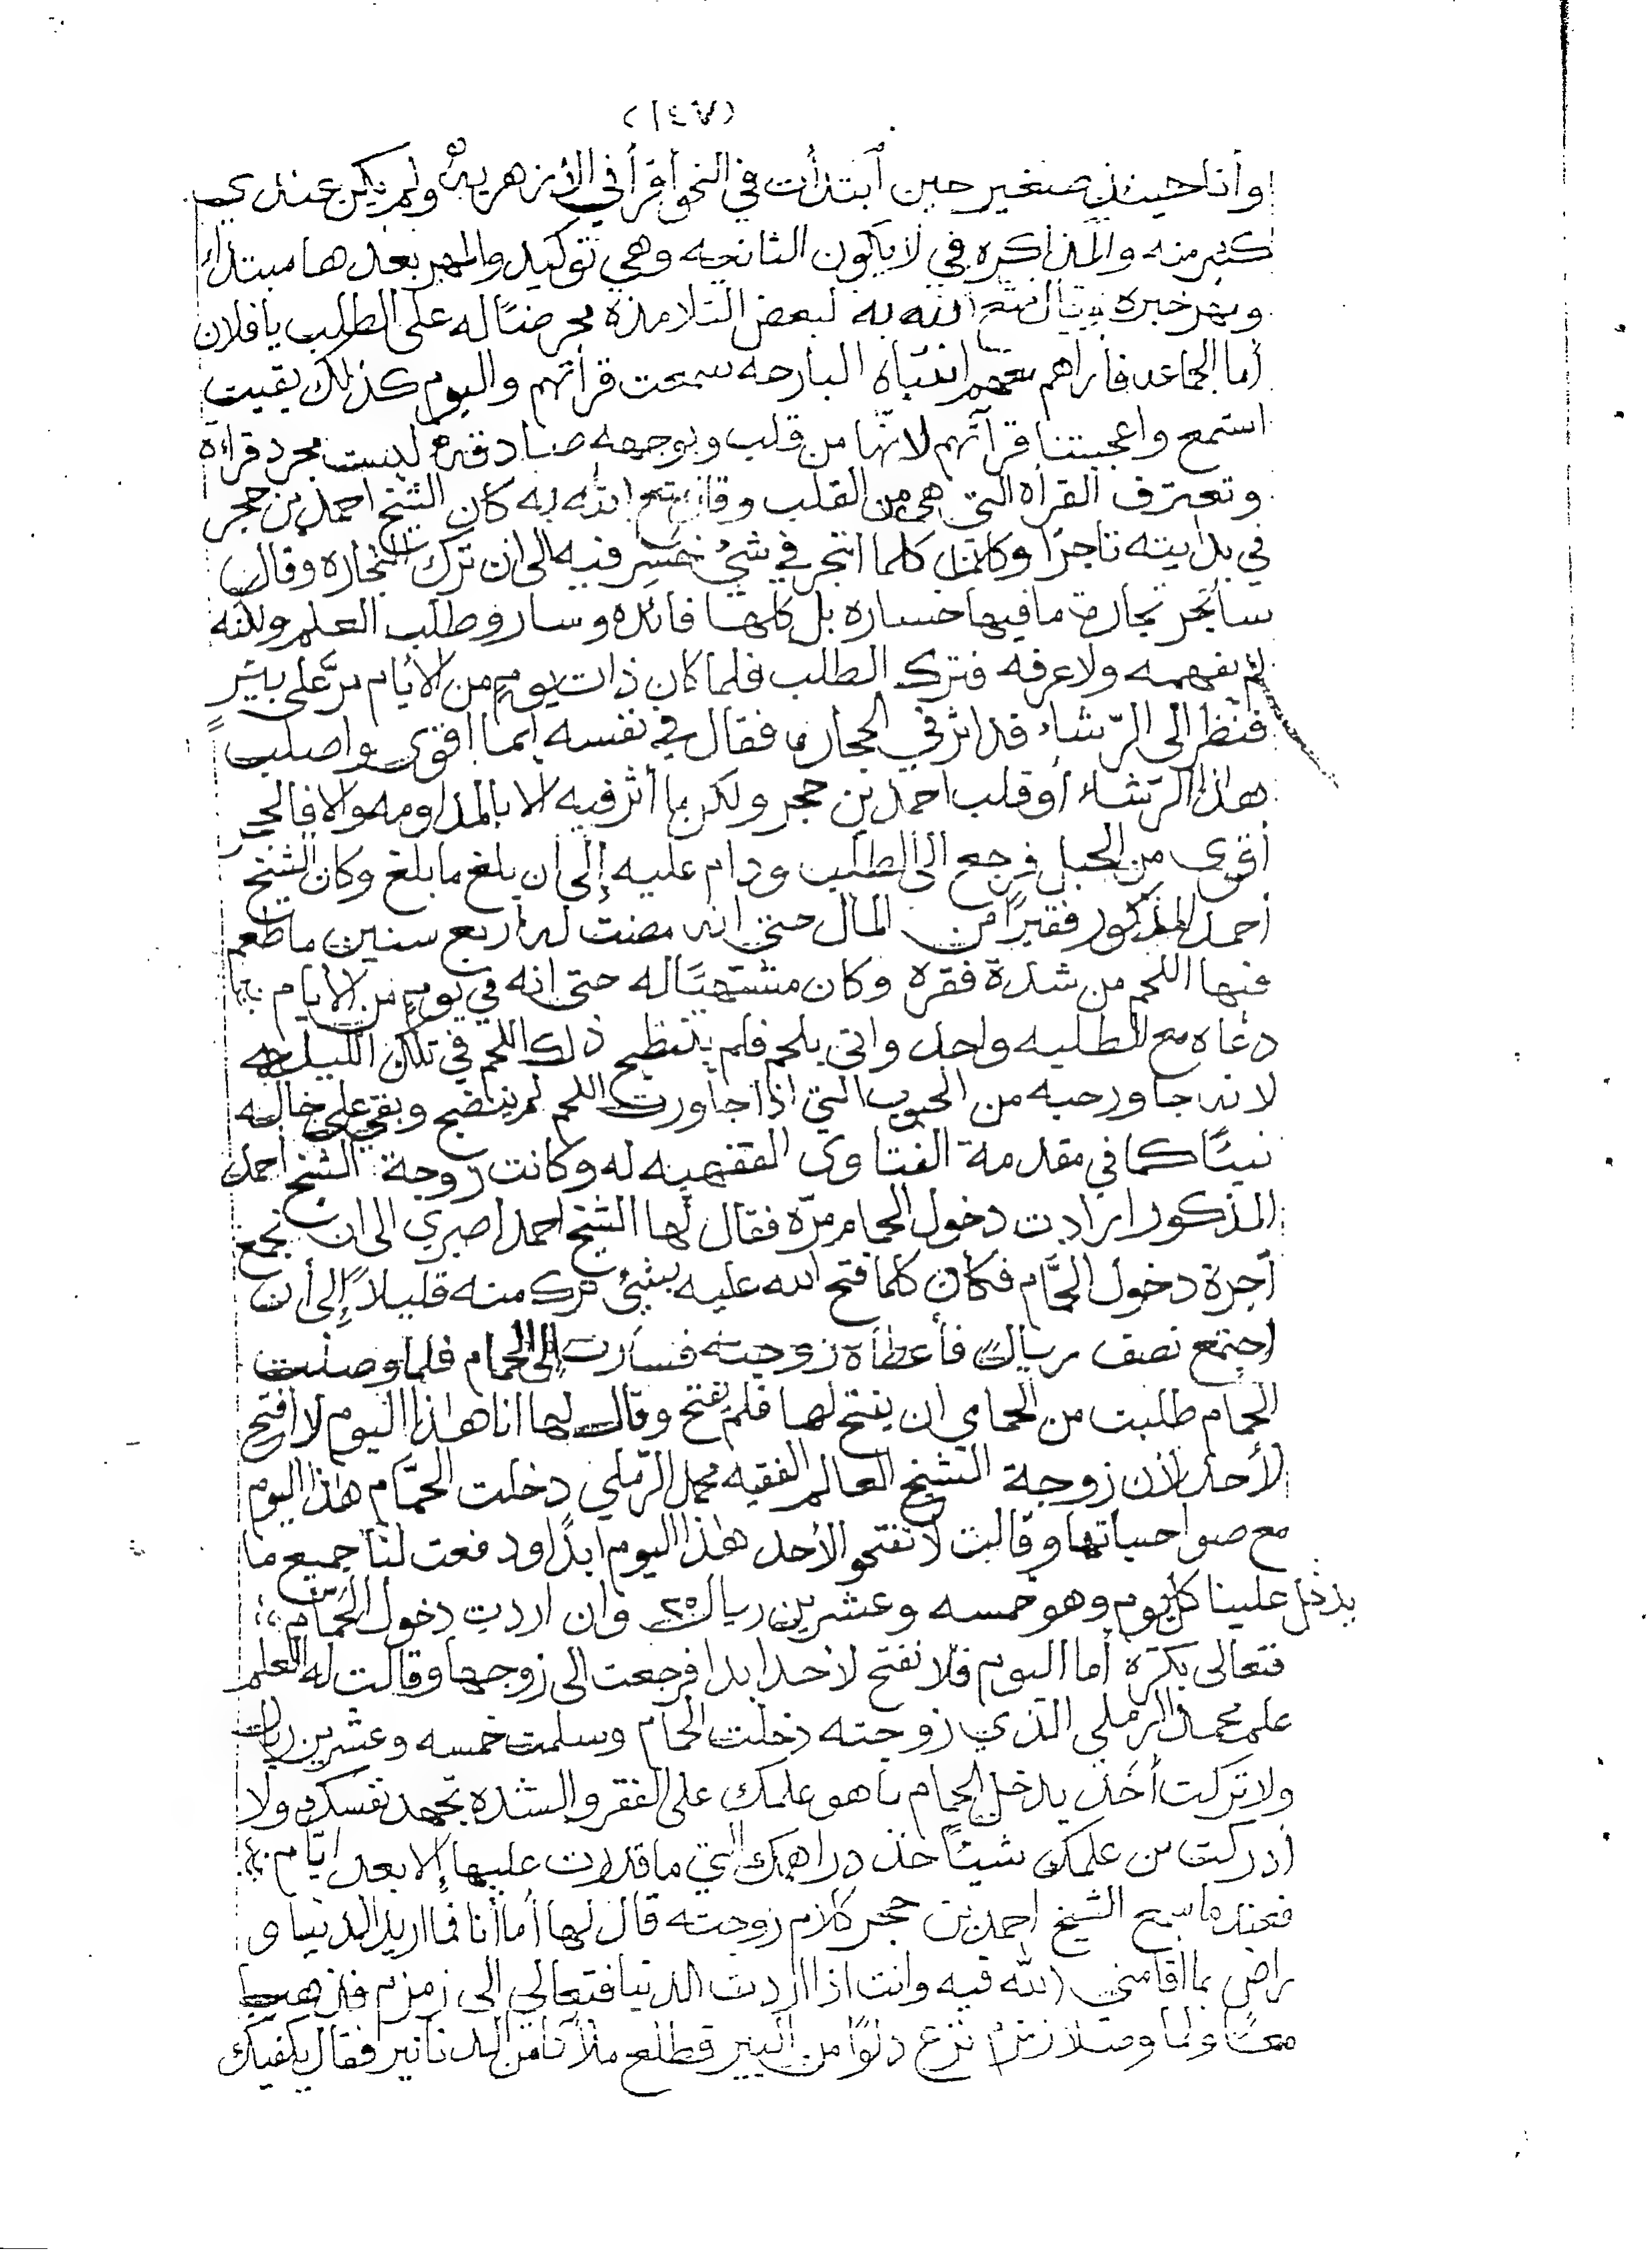 (١٤٧)
وأنا حينئذ صغير حين ٱبتدأت في النحو أقرأ في الأزهريه ولم يكن عندي
كثير منه والمذاكره في لا يكون الثانيه وهي توكيد والمهر بعدها مبتدأ
وبهر خبره وقال متع الله به لبعض التلامذة محرضًا له على الطلب يا فلان
أما الجماعه فأراهم معهم انتباه البارحه سمعت قرأتهم واليوم كذلك بقيت
استمع واعجبتنا قرآتهم لانّها من قلب وبوجهه صادقه ليست مجرد قراءة
وتعترف القراه التي هي من القلب وقال متع الله به كان الشيخ احمد بن حجر
في بدايته تاجرًا وكان كلما اتجر في شيء خسر فيه الى ان ترك التجاره وقال
سأتجر تجارة ما فيها خساره بل كلها فائده وسار وطلب العلم ولكنه
لم يفهمه ولا عرفه فترك الطلب فلما كان ذات يوم من الأيام مرَّ على بير
فنظر الى الرّشاء قد اثر في الحجاره فقال في نفسه أيما اقوى واصلب
هذا الرشاء أو قلب احمد بن حجر ولكن ما أثر فيه الا بالمداومه والا فالحجر
أقوى من الحبل فرجع الى الطلب ودام عليه إلى أن بلغ ما بلغ وكان الشيخ
أحمد المذكور فقيرًا من المال حتى انه مضت له اربع سنين ما طعم
فيها اللحم من شدة فقره وكان مشتهيًا له حتى انه في يوم من الايام
دعاه مع الطلبه واحد واتى بلحم فلم ينطبح ذلك اللحم في تلك الليله
لانه جاور حبه من الحبوب التي اذا جاورت اللحم لم ينضج وبقي على حاله
نيئًا كما في مقدمة الفتاوى الفقهيه له وكانت زوجة الشيخ أحمد
المذكور ارادت دخول الحمام مرّة فقال لها الشيخ احمد اصبري الى ان نجمع
أجرة دخول الحمَّام فكان كلما فتح الله عليه بشيء ترك منه قليلاً إلى أن
اجتمع نصف ريال فأعطاه زوجته فسارت إلى الحمام فلما وصلت
الحمام طلبت من الحمامي ان يفتح لها فلم يفتح وقال لها انا هذا اليوم لا أفتح
لأحد لأن زوجة الشيخ العالم الفقيه محمد الرّملي دخلت الحمَّام هذا اليوم
مع صواحباتها وقالت لا تفتحوا لأحد هذا اليوم ابدًا ودفعت لنا جميع ما
يدخل علينا كل يوم وهو خمسه وعشرين ريال ٢٥ وان اردت دخول الحمّام
فتعالى بكرّه أما اليوم فلا نفتح لأحد ابدا فرجعت الى زوجها وقالت له العلم
علم محمد الرملي الذي زوجته دخلت الحمام وسلمت خمسه وعشرين ريال
ولا تركت أحد يدخل الحمام ما هو علمك على الفقر والشده تجهد نفسك ولا
أدركت من علمك شيئًا خذ دراهمك التي ما قدرت عليها إلا بعد ايّام
فعندما سمع الشيخ احمد بن حجر كلام زوجته قال لها أما أنا فما اريد الدنيا و
راض بما اقامني الله فيه وانت اذا اردت الدنيا فتعالي الى زمزم فذهبا
معًا ولما وصلا زمزم نزع دلوًا من البير فطلع ملآنا من الدنانير فقال يكفيك